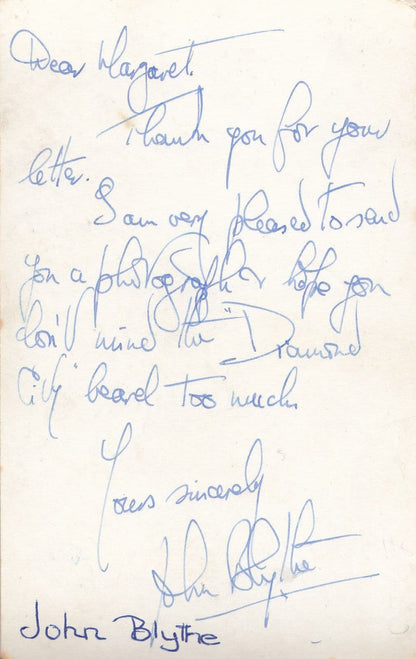 Dear Margaret.
Thank you for your
letter.
I am very pleased to send
you a photograph & hope you
don't mind the "Diamond
City" beard too much.
Yours sincerely
John Blythe
John Blythe